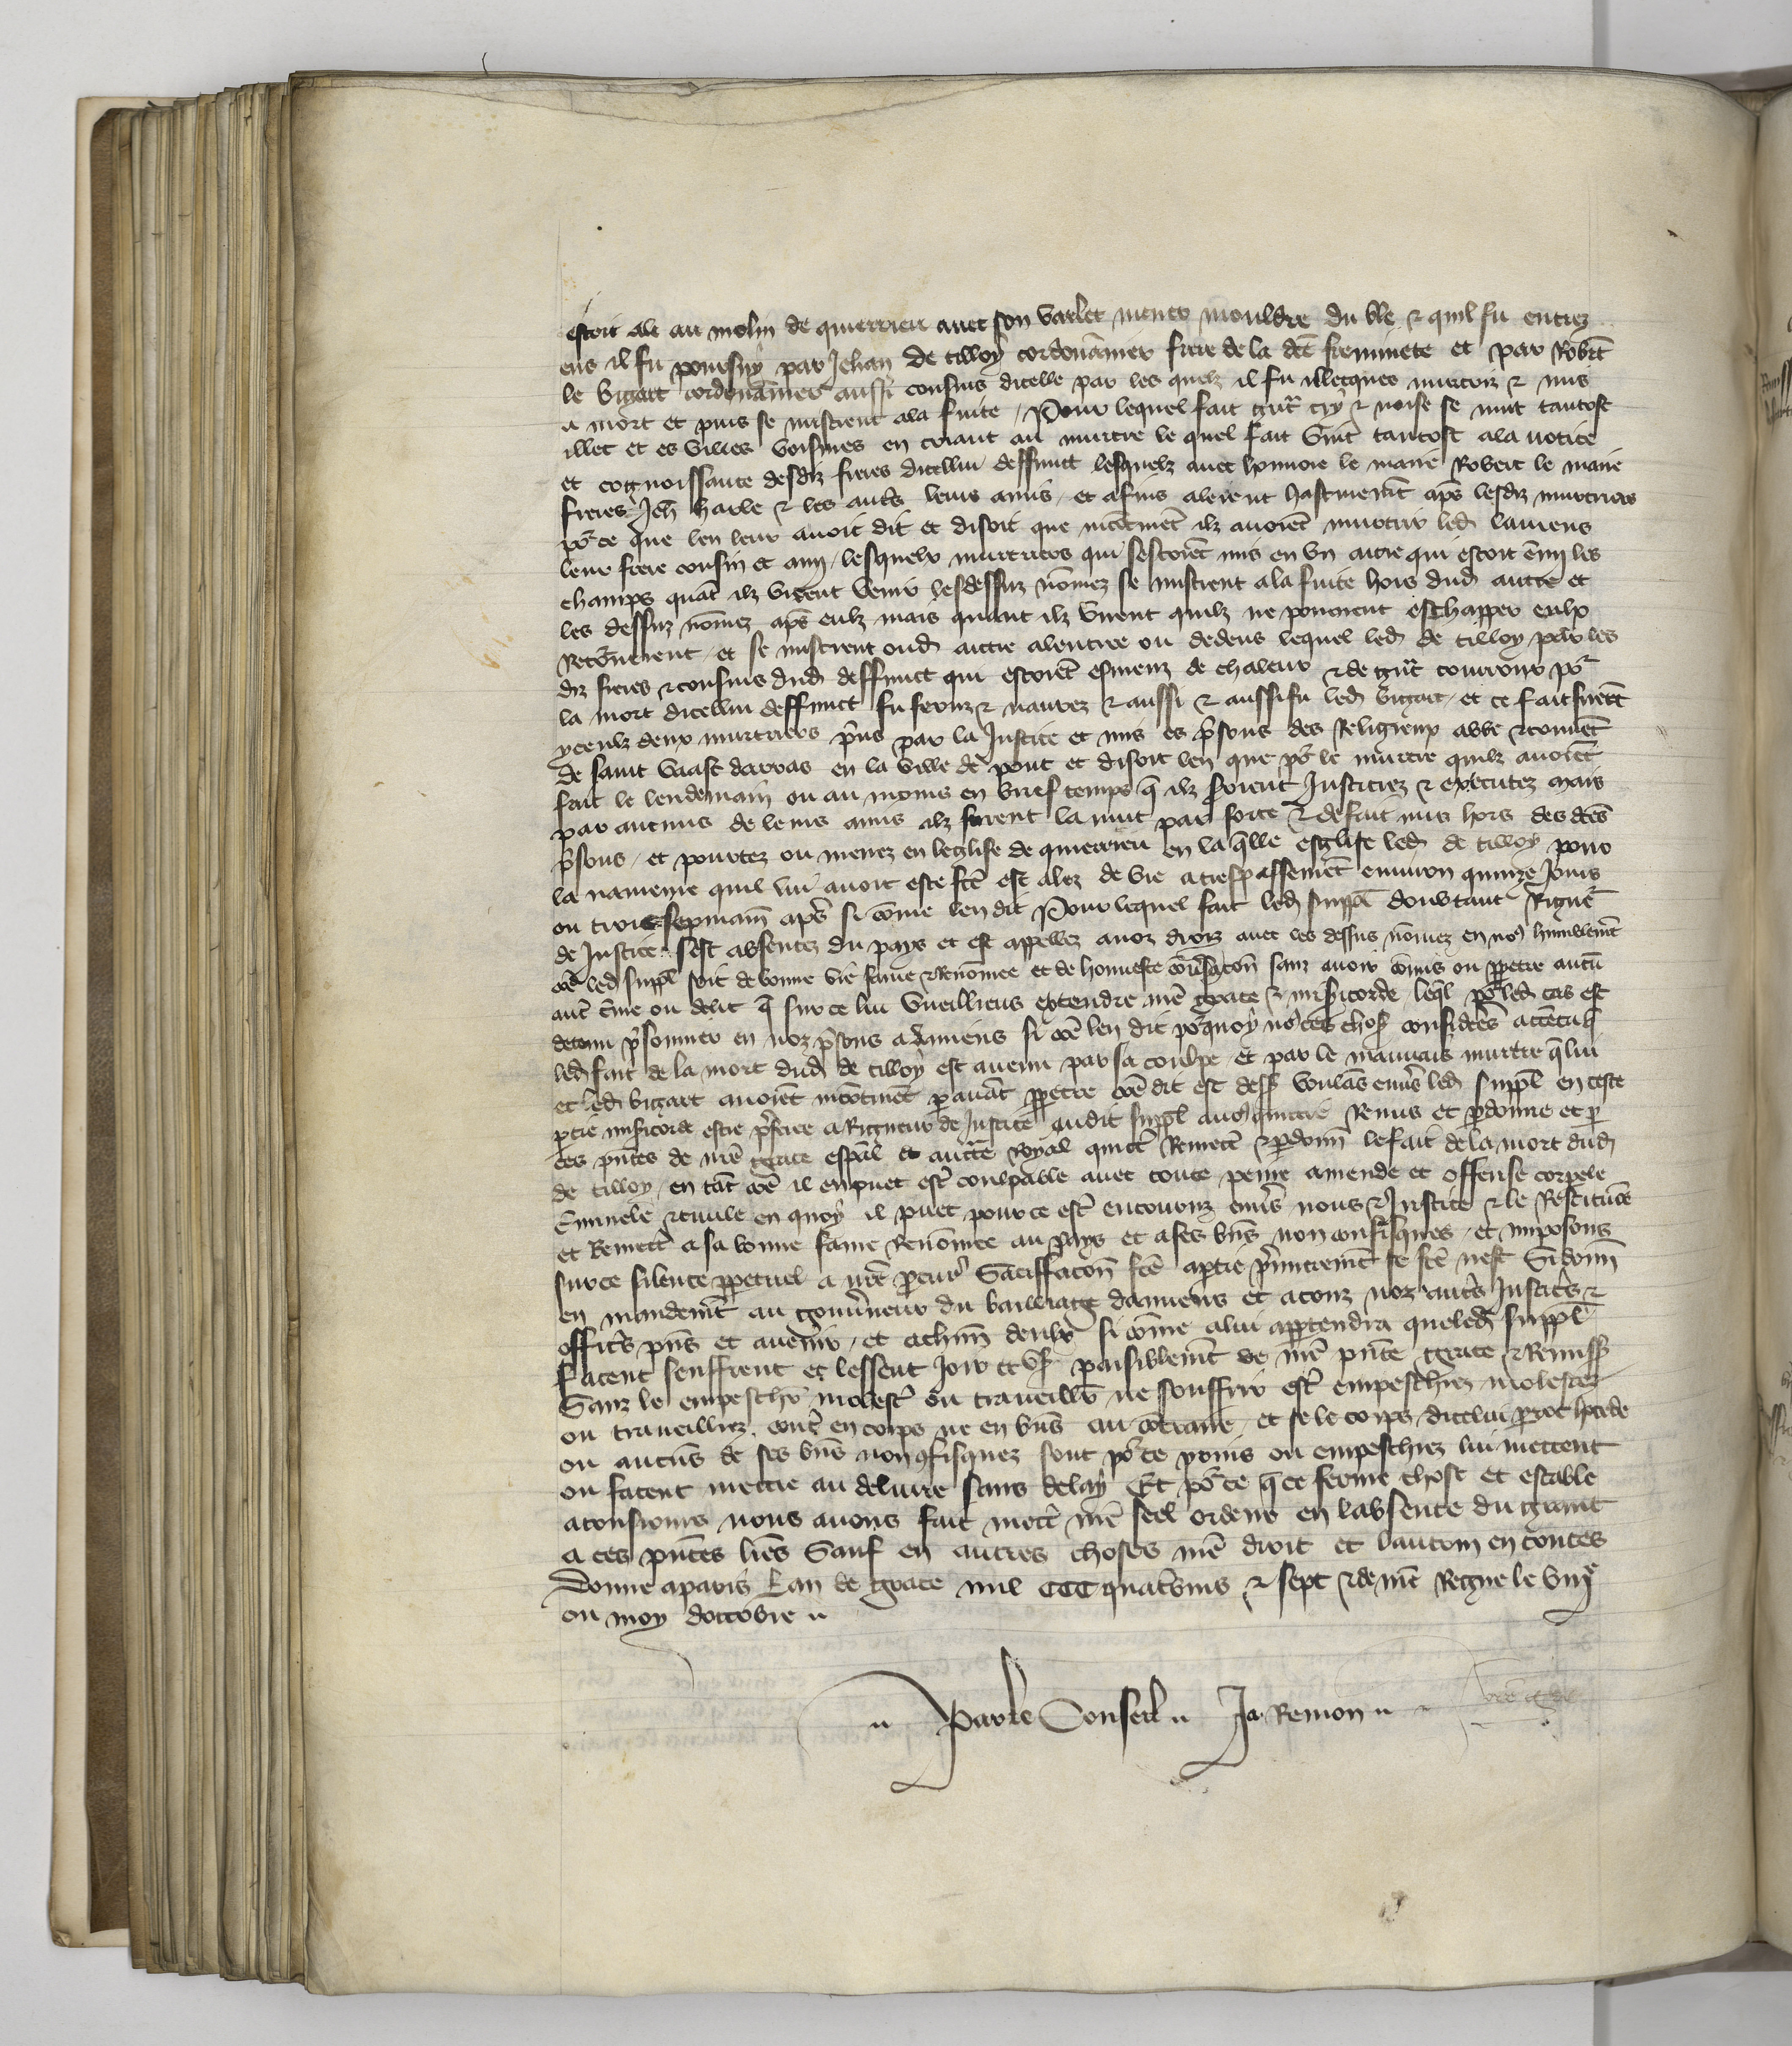 estoit ale au molin de quierrieu avec son varlet mener mouldre du ble & quil fu entrez
ens il fu poursuy par Jehan de tilloy cordouānier frere de la dcē fremmete et par Robt̄
le bigart cordouānier aussi cousins dicelle par les quelz il fu illecques murtriz & mis
a mort et puis se mistrent ala fuite / Pour lequel fait grāt cry & noise se mut tantost
illec et es villes voisines en criant au murtre le quel fait vint tantost ala notice
et cognoissance desdiz freres dicellui deffunct lesquelz avec honnore le maire Robert le maire
freres Jeh̄ harle & les autrēs leurs amis / et afins alerent hastivemēt apēs lesdiz murtriers
pōr ce que len leur avoit dit et disoit que incōtinēt ilz avoiēt murtrir led laurens
leur frere cousin et amy / lesquelx murtriers qui sestoiēt mis en vn aitre qui estoit ēmy les
champs quāt ilz virent venir les dessuz nōmez se mistrent a la fuite hors dud autre et
les dessuz nōmez apēs eulz mais quant ilz virent quilz ne pouoient eschapper eulx
Retōurnerent / et se mistrent oud aitre alentree ou dedens lequel led de tilloy par les
diz freres & cousins dud deffunct qui estoiēt esmeuz de chaleur & de grāt courroux pōr
la mort dicellui deffunct fu feruz & navrez & aussi & aussi fu led bigart / et ce fait furēt
yceulz deux murtriers prīs par la Justice et mis es prīsons des Religieux abbe & couuēt
de saint vaast darras en la ville de pont et disoit len que pōr le murtre quilz avoiēt
fait le lendemain ou au moins en brief temps q̄ ilz seroient Justiciez & executez mais
par aucuns de leurs amis ilz furent la nuit par force & de fait mis hors des dcēs
prīsons / et pourtez ou menez en leglise de quierrieu en la q̄lle esglise led de tilloy pour
la navreure quil lui avoit este fcē est alez de vie a trespassemēt environ quinze Jours
ou trois sepmain̄ apēs si cōme len dit Pour lequel fait led supplī doubtant Rigueʳ
de Justice sest absentez du pays et est appellez a noz droiz avec les dessus nōmez en noꝰ humblemēt
cōe led suppl soit de bonne vie fame & Renōmee et de honneste cōuersacōn sanz avoir cōmis ou ppetre aucū
autʳ c̄me ou delit q̄ sur ce lui vueilliens extendre nrē grace & misīcorde / leq̄l pōr led cas est
detenu prīsonnier en noz prīsons a Damiens si cōe len dit pōrquoy noꝰ ces chosꝭ considērēs attendu q̄
led fait de la mort dud de tilloy est avenu par sa coulpe / et par le mauvais murtre q̄ lui
et led bigart avoiēt incōtinēt pavāt ppetre cōe dit est dessꝭ voulās envēs led suppl en ceste
ptie misīcorde estre prēferee a Rigueur de Justice audit suppl avoꝰ quictie Remis et pdonne et p
ces pn̄tes de nrē grace espāl et auctē royal quictꝭ Remectꝭ & pdonn̄ le fait de la mort dud
de tilloy / en tāt cōe il en puet estʳ coulpable avec toute peine amende et offense corpele
Criminele & civile en quoy il puet pour ce estʳ encouruz envēs nous & Justice & le Restituōs
et Remectʳ a sa bonne fame Renōmee au pays et a ses bn̄s non confisques / et imposons
sur ce silence ppetuel a nrē pcureʳ Satiffacōn fcē a ptie prēmieremēt se fcē nest Si donn̄
en mandemēt au gouvneur du bailliage damiens et a touz noz autʳs Justicēs &
officēs pn̄s et avenir / et a chm̄ deulx si cōme a lui apptendra que led suppl
facent seuffrent et lessent Joir et vsꝭ paisiblemēt de nrē pn̄te grace & Remissꝭ
Sanz le empeschʳ molestʳ ou traveillʳ ne souffrir estʳ empeschiez molestez
ou traveilliez / contʳ en corps ne en bn̄s au cōtraire / et se le corps dicelui p cest hocede
ou aucūs de ses bn̄s non ꝯfisquez sont pōr ce prins ou empeschiez lui mettent
ou facent mettre au delivre sans delay Et pōr ce q̄ ce ferme chose et estable
a tousiours nous avons fait mectʳ nrē seel ordene en labsence du grant
a ces pn̄tes lr̄es Sauf en autres choses nrē droit et lautruy en toutes
donne a paris Lan de grace mil CCC quatʳvins & sept & de nrē Regne le viij͏ᵉ
ou moy doctobre //
// Par le Conseil // Ja Remon //